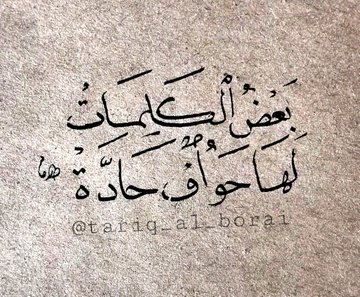 بَعْضُ الْكَلِمَاتُ
لَهَا حَوُافٌ حَادَّةٌ
@tariq_al_borai